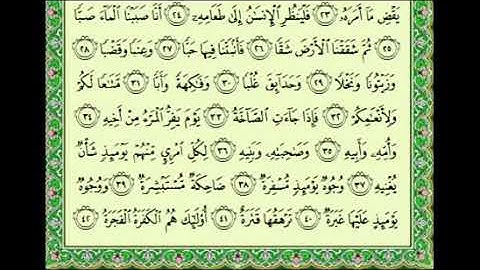 يَقْضِ مَا أَمَرَهُۥ ۝٢٣ فَلْيَنظُرِ ٱلْإِنسَٰنُ إِلَىٰ طَعَامِهِۦٓ ۝٢٤ أَنَّا صَبَبْنَا ٱلْمَآءَ صَبًّا
۝٢٥ ثُمَّ شَقَقْنَا ٱلْأَرْضَ شَقًّا ۝٢٦ فَأَنۢبَتْنَا فِيهَا حَبًّا ۝٢٧ وَعِنَبًا وَقَضْبًا ۝٢٨
وَزَيْتُونًا وَنَخْلًا ۝٢٩ وَحَدَآئِقَ غُلْبًا ۝٣٠ وَفَٰكِهَةً وَأَبًّا ۝٣١ مَّتَٰعًا لَّكُمْ
وَلِأَنْعَٰمِكُمْ ۝٣٢ فَإِذَا جَآءَتِ ٱلصَّآخَّةُ ۝٣٣ يَوْمَ يَفِرُّ ٱلْمَرْءُ مِنْ أَخِيهِ ۝٣٤
وَأُمِّهِۦ وَأَبِيهِ ۝٣٥ وَصَٰحِبَتِهِۦ وَبَنِيهِ ۝٣٦ لِكُلِّ ٱمْرِئٍ مِّنْهُمْ يَوْمَئِذٍ شَأْنٌ
يُغْنِيهِ ۝٣٧ وُجُوهٌ يَوْمَئِذٍ مُّسْفِرَةٌ ۝٣٨ ضَاحِكَةٌ مُّسْتَبْشِرَةٌ ۝٣٩ وَوُجُوهٌ
يَوْمَئِذٍ عَلَيْهَا غَبَرَةٌ ۝٤٠ تَرْهَقُهَا قَتَرَةٌ ۝٤١ أُو۟لَٰٓئِكَ هُمُ ٱلْكَفَرَةُ ٱلْفَجَرَةُ ۝٤٢